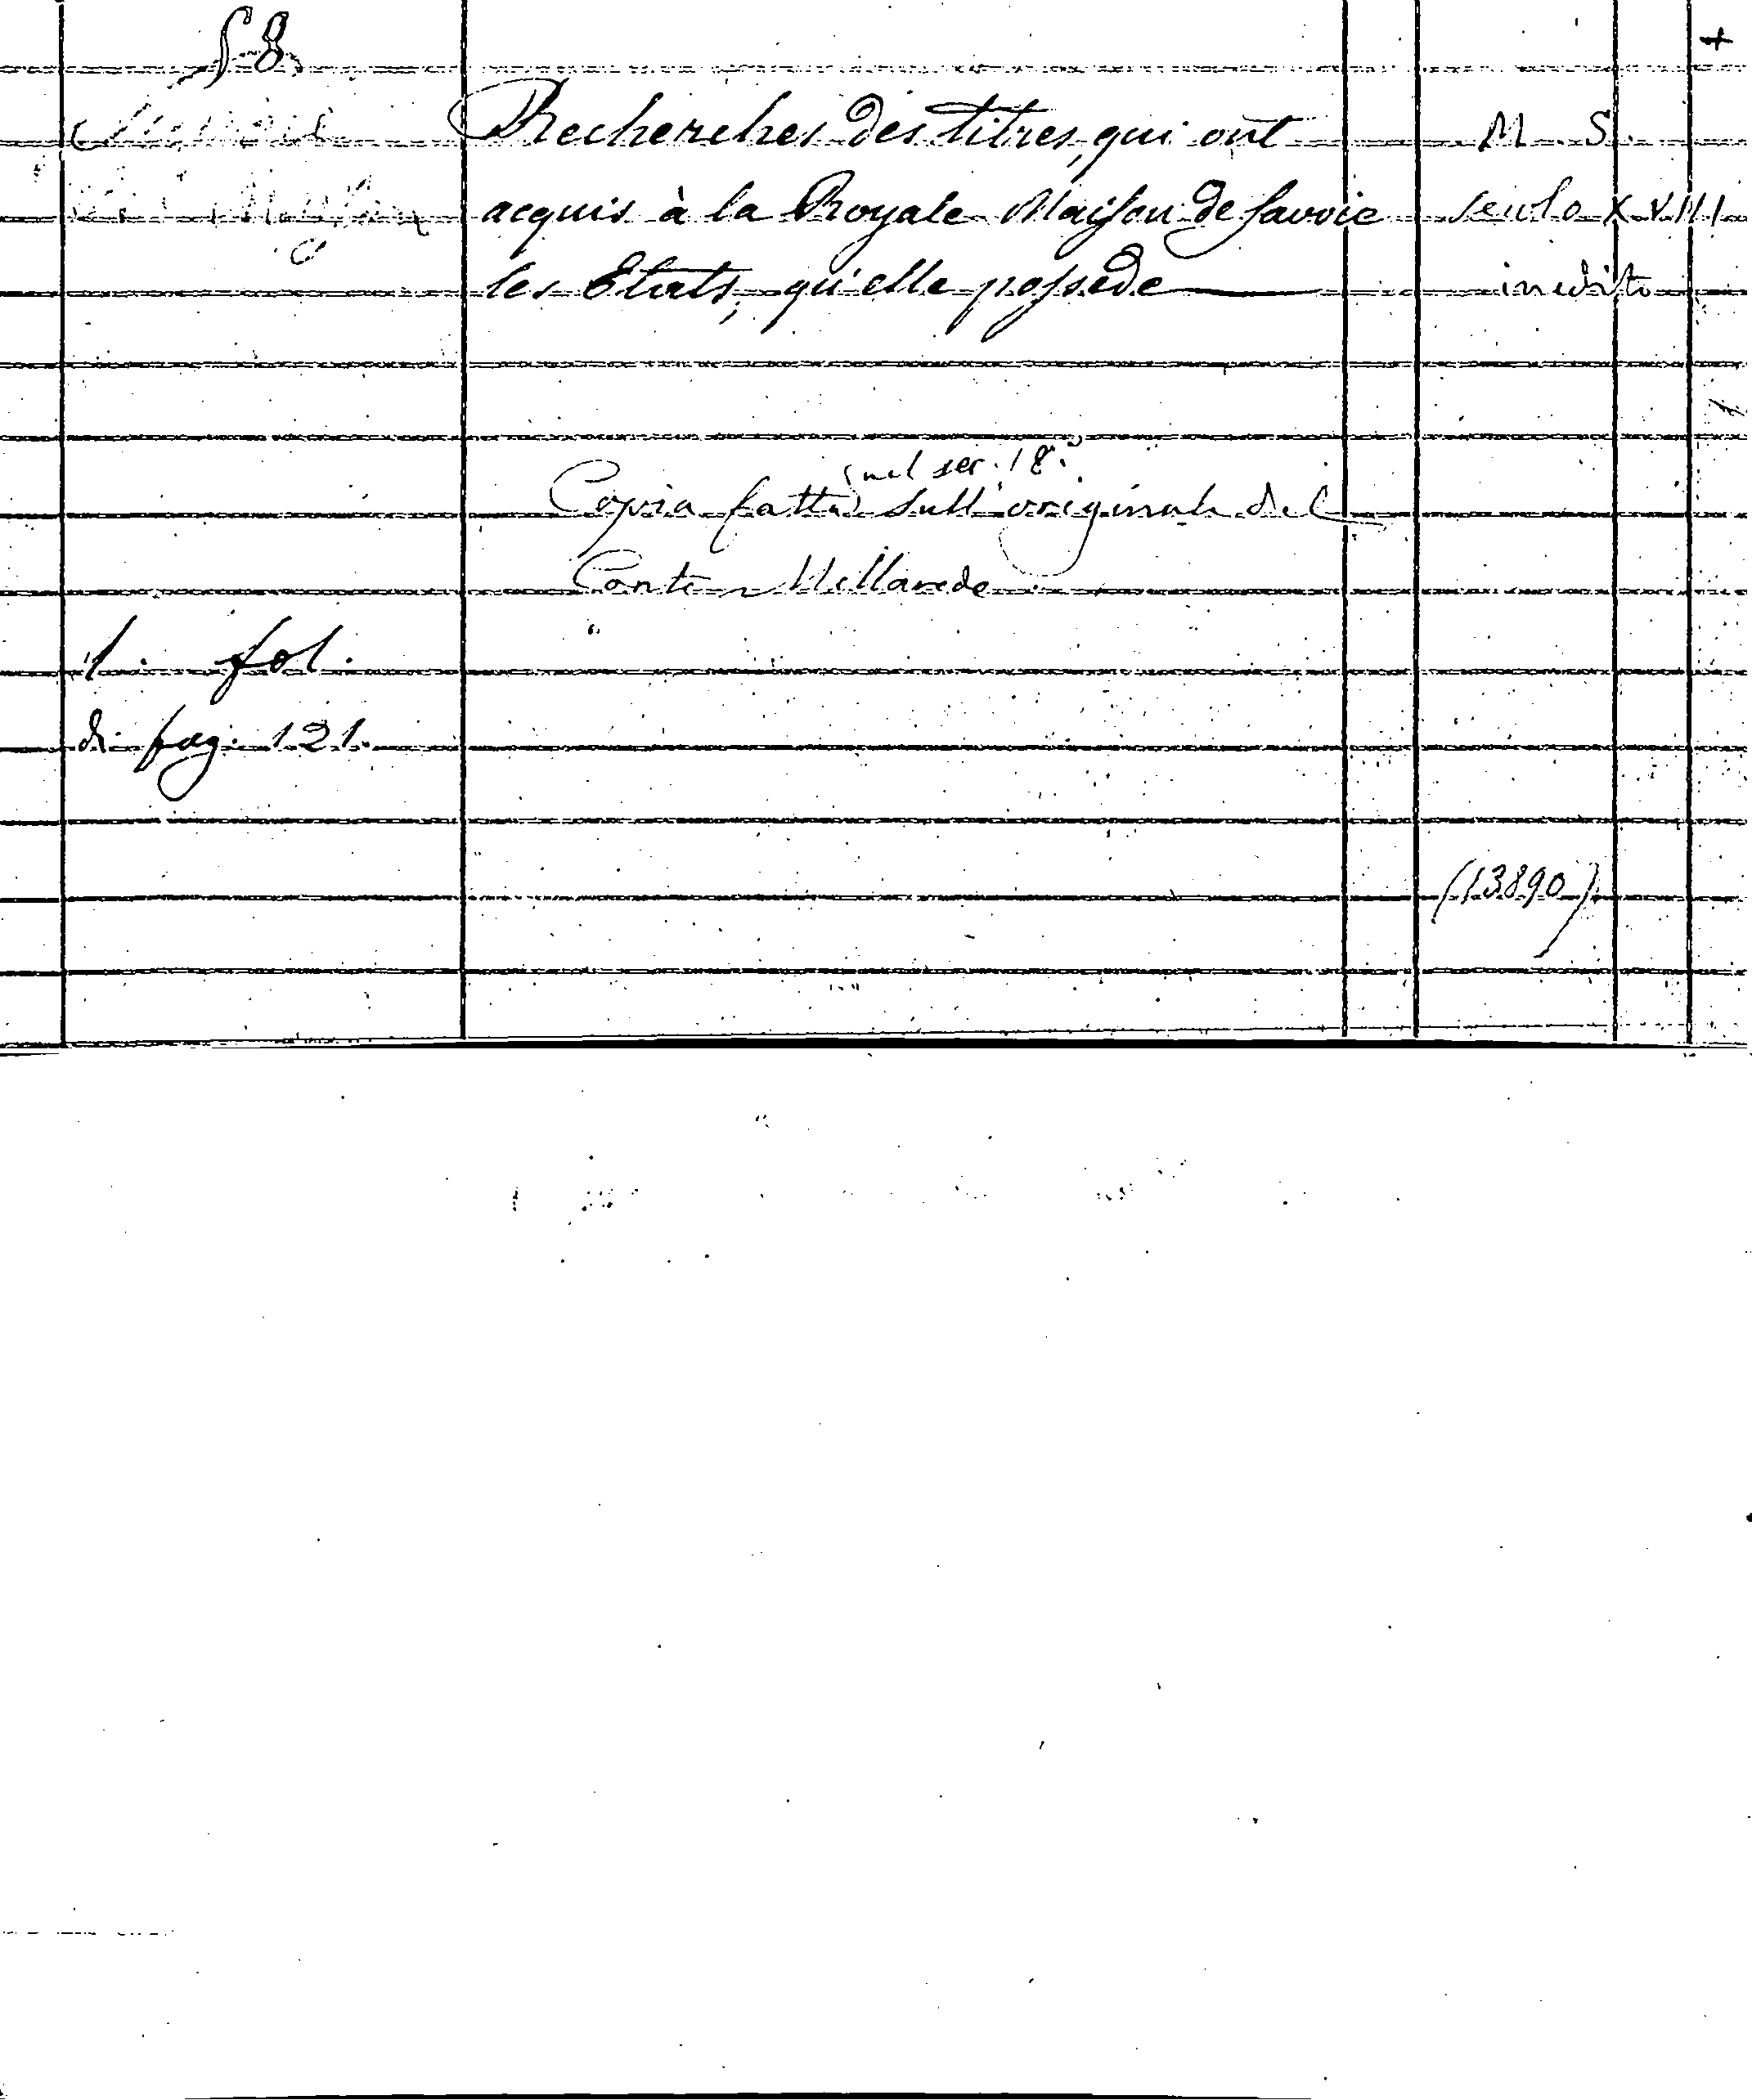 58
Recherches des titres, qui ont
acquis à la Royale Maison de Savoie
les Etats, qu'elle possede
M. S.
secolo XVIII
inedito
(nel sec. 18.°)
Copia fatta sull'originale del
Conte Mellarede
1. fol.
di pag. 121.
(13890)